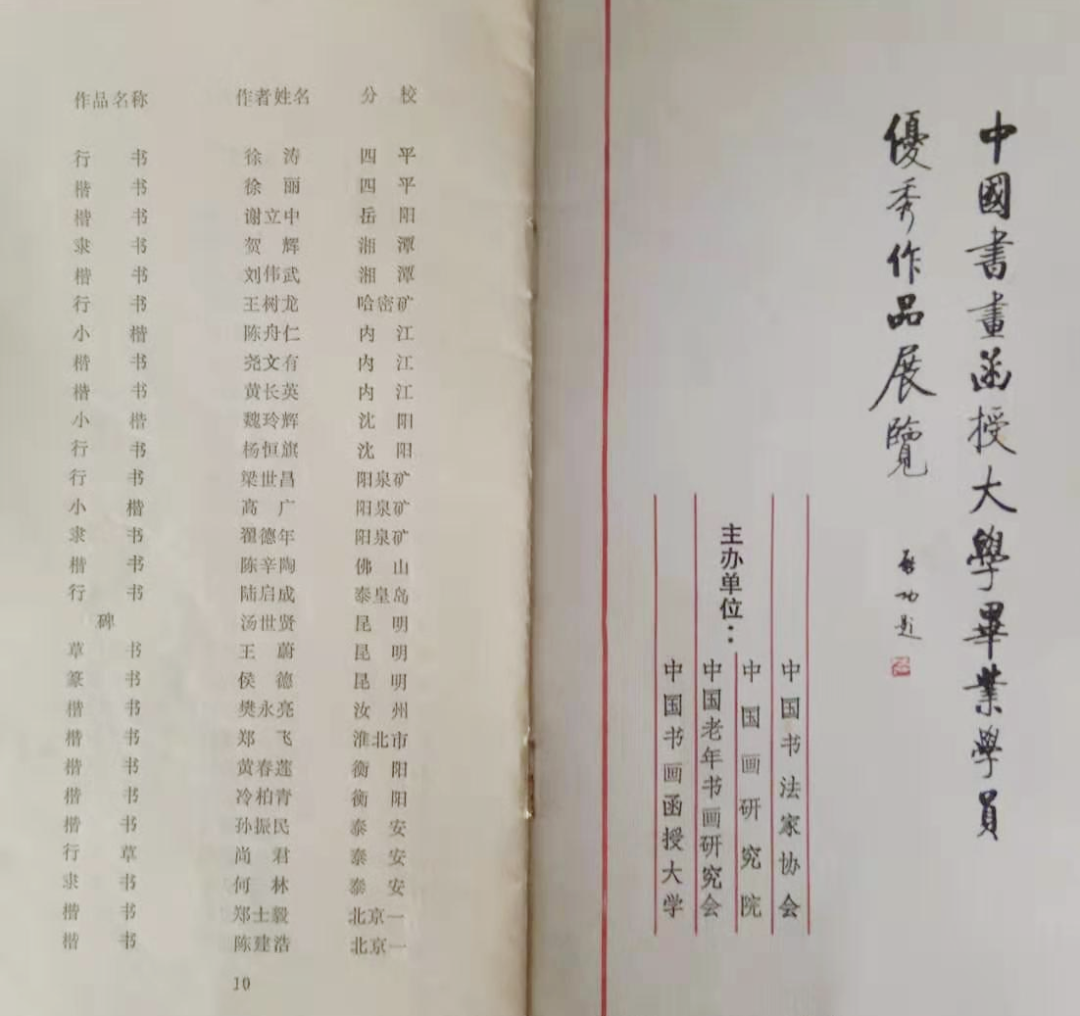 作品名称 作者姓名 分校
行书 徐涛 四平
楷书 徐丽 四平
楷书 谢立中 岳阳
隶书 贺辉 湘潭
楷书 刘伟武 湘潭
行书 王树龙 哈密矿
小楷 陈舟仁 内江
楷书 尧文有 内江
楷书 黄长英 内江
小楷 魏玲辉 沈阳
行书 杨恒旗 沈阳
行书 梁世昌 阳泉矿
小楷 高广 阳泉矿
隶书 翟德年 阳泉矿
楷书 陈辛陶 佛山
行书 陆启成 秦皇岛
碑 汤世贤 昆明
草书 王蔚 昆明
篆书 侯德 昆明
楷书 樊永亮 汝州
楷书 郑飞 淮北市
楷书 黄春莲 衡阳
楷书 冷柏青 衡阳
楷书 孙振民 泰安
行草 尚君 泰安
隶书 何林 泰安
楷书 郑士毅 北京一
楷书 陈建浩 北京一
10
中國書畫函授大學畢業學員
優秀作品展覽
启功题
主办单位：
中国书法家协会
中国画研究院
中国老年书画研究会
中国书画函授大学